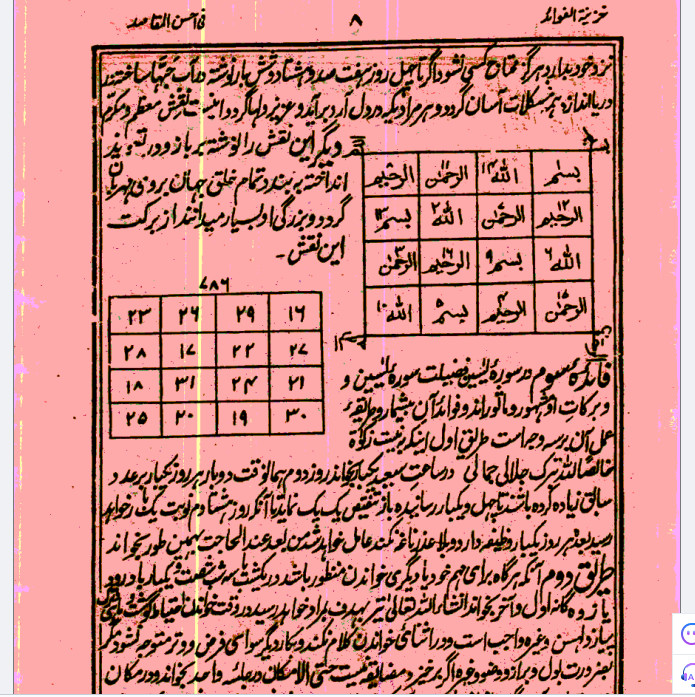 خزینۃ الفوائد ۸ فی احسن المقاصد
نزد خود بدارد هرگز محتاج کسی نشود اگر تا چهل روز هفت صد و هشتاد و شش بار نوشته در آب
در یا اندازد هر مشکلات آسان گردد و هر مراد یکه در دل آرد برآید و عزیز دلها گردد اینست نقش معظم و مکرم
دیگر این نقش را نوشته بر بازو و در
انداخته بر بندد تمام خلق جهان بر وی مهربان
گردد و بزرگی او بسیار میدانند از برکت
این نقش ۔
بسم اللہ ۱۴ الرحمٰن ۱۱ الرحیم
الرحیم ۱۲ الرحمٰن اللہ ۲ بسم ۱۳
اللہ ۶ بسم ۹ الرحیم ۱۶ الرحمٰن ۳
الرحمٰن الرحیم بسم ۵ اللہ ۱۰
۷۸۶
۲۳ ۲۶ ۲۹ ۱۶
۲۸ ۱۷ ۲۲ ۲۷
۱۸ ۳۱ ۲۴ ۲۱
۲۵ ۲۰ ۱۹ ۳۰
فائدہ سوم در سورۂ یٰسین فضیلت سورۂ یٰسین و
برکات او مشهور و ماثور اند و فوائد آن بیشمار و طریقۂ
عمل آن بر سه وجه است طریق اول اینکه به نیت زکوٰة
خالصاً للّٰہ ترک جلالی جمالی در ساعت سعید یکبار بخواند روز دوم همانوقت دو بار هر روز یکبار بر عدد
سابق زیاده کرده باشد تا چهل و یکبار رسانیده باز تنقیص یک یک نماید تا آنکه روز هشتادم نوبت یک بار خواهد
رسید بعد هر روز یکبار وظیفه دارد و بلا عذر ناغه نکند عامل خواهد شد من بعد عند الحاجت بهمین طور بخواند
طریق دوم آنکه هر گاه برای مهم خود یا دیگری خواندن منظور باشد در یکشب
یازده گانه اول و آخر بخواند انشاء اللہ تعالیٰ تیر بهدف مراد خواهد رسید در وقت خواندن احتیاط گوشت و ماهی
پیاز و لهسن وغیره واجب است و در اثنای خواندن کلام نکند و بکار دیگر سوای فرض و وتر متوجه نشود مگر
بضرورت بول و براز و وضو وغیره اگر برخیزد مضایقه نیست حتی الامکان در جلسۂ واحد بخواند و در مکان